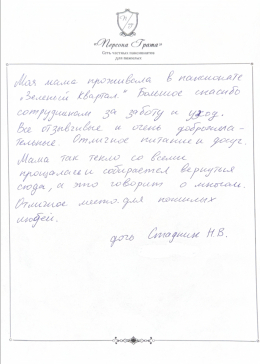 «Персона Грата»
Сеть частных пансионатов
для пожилых
Моя мама проживала в пансионате
„Зеленый Квартал" Большое спасибо
сотрудникам за заботу и уход.
Все отзывчивые и очень доброжела-
тельные. Отличное питание и досуг.
Мама так тепло со всеми
прощалась и собирается вернуться
сюда, а это говорит о многом.
Отличное место для пожилых
людей.
дочь Стадник Н.В.